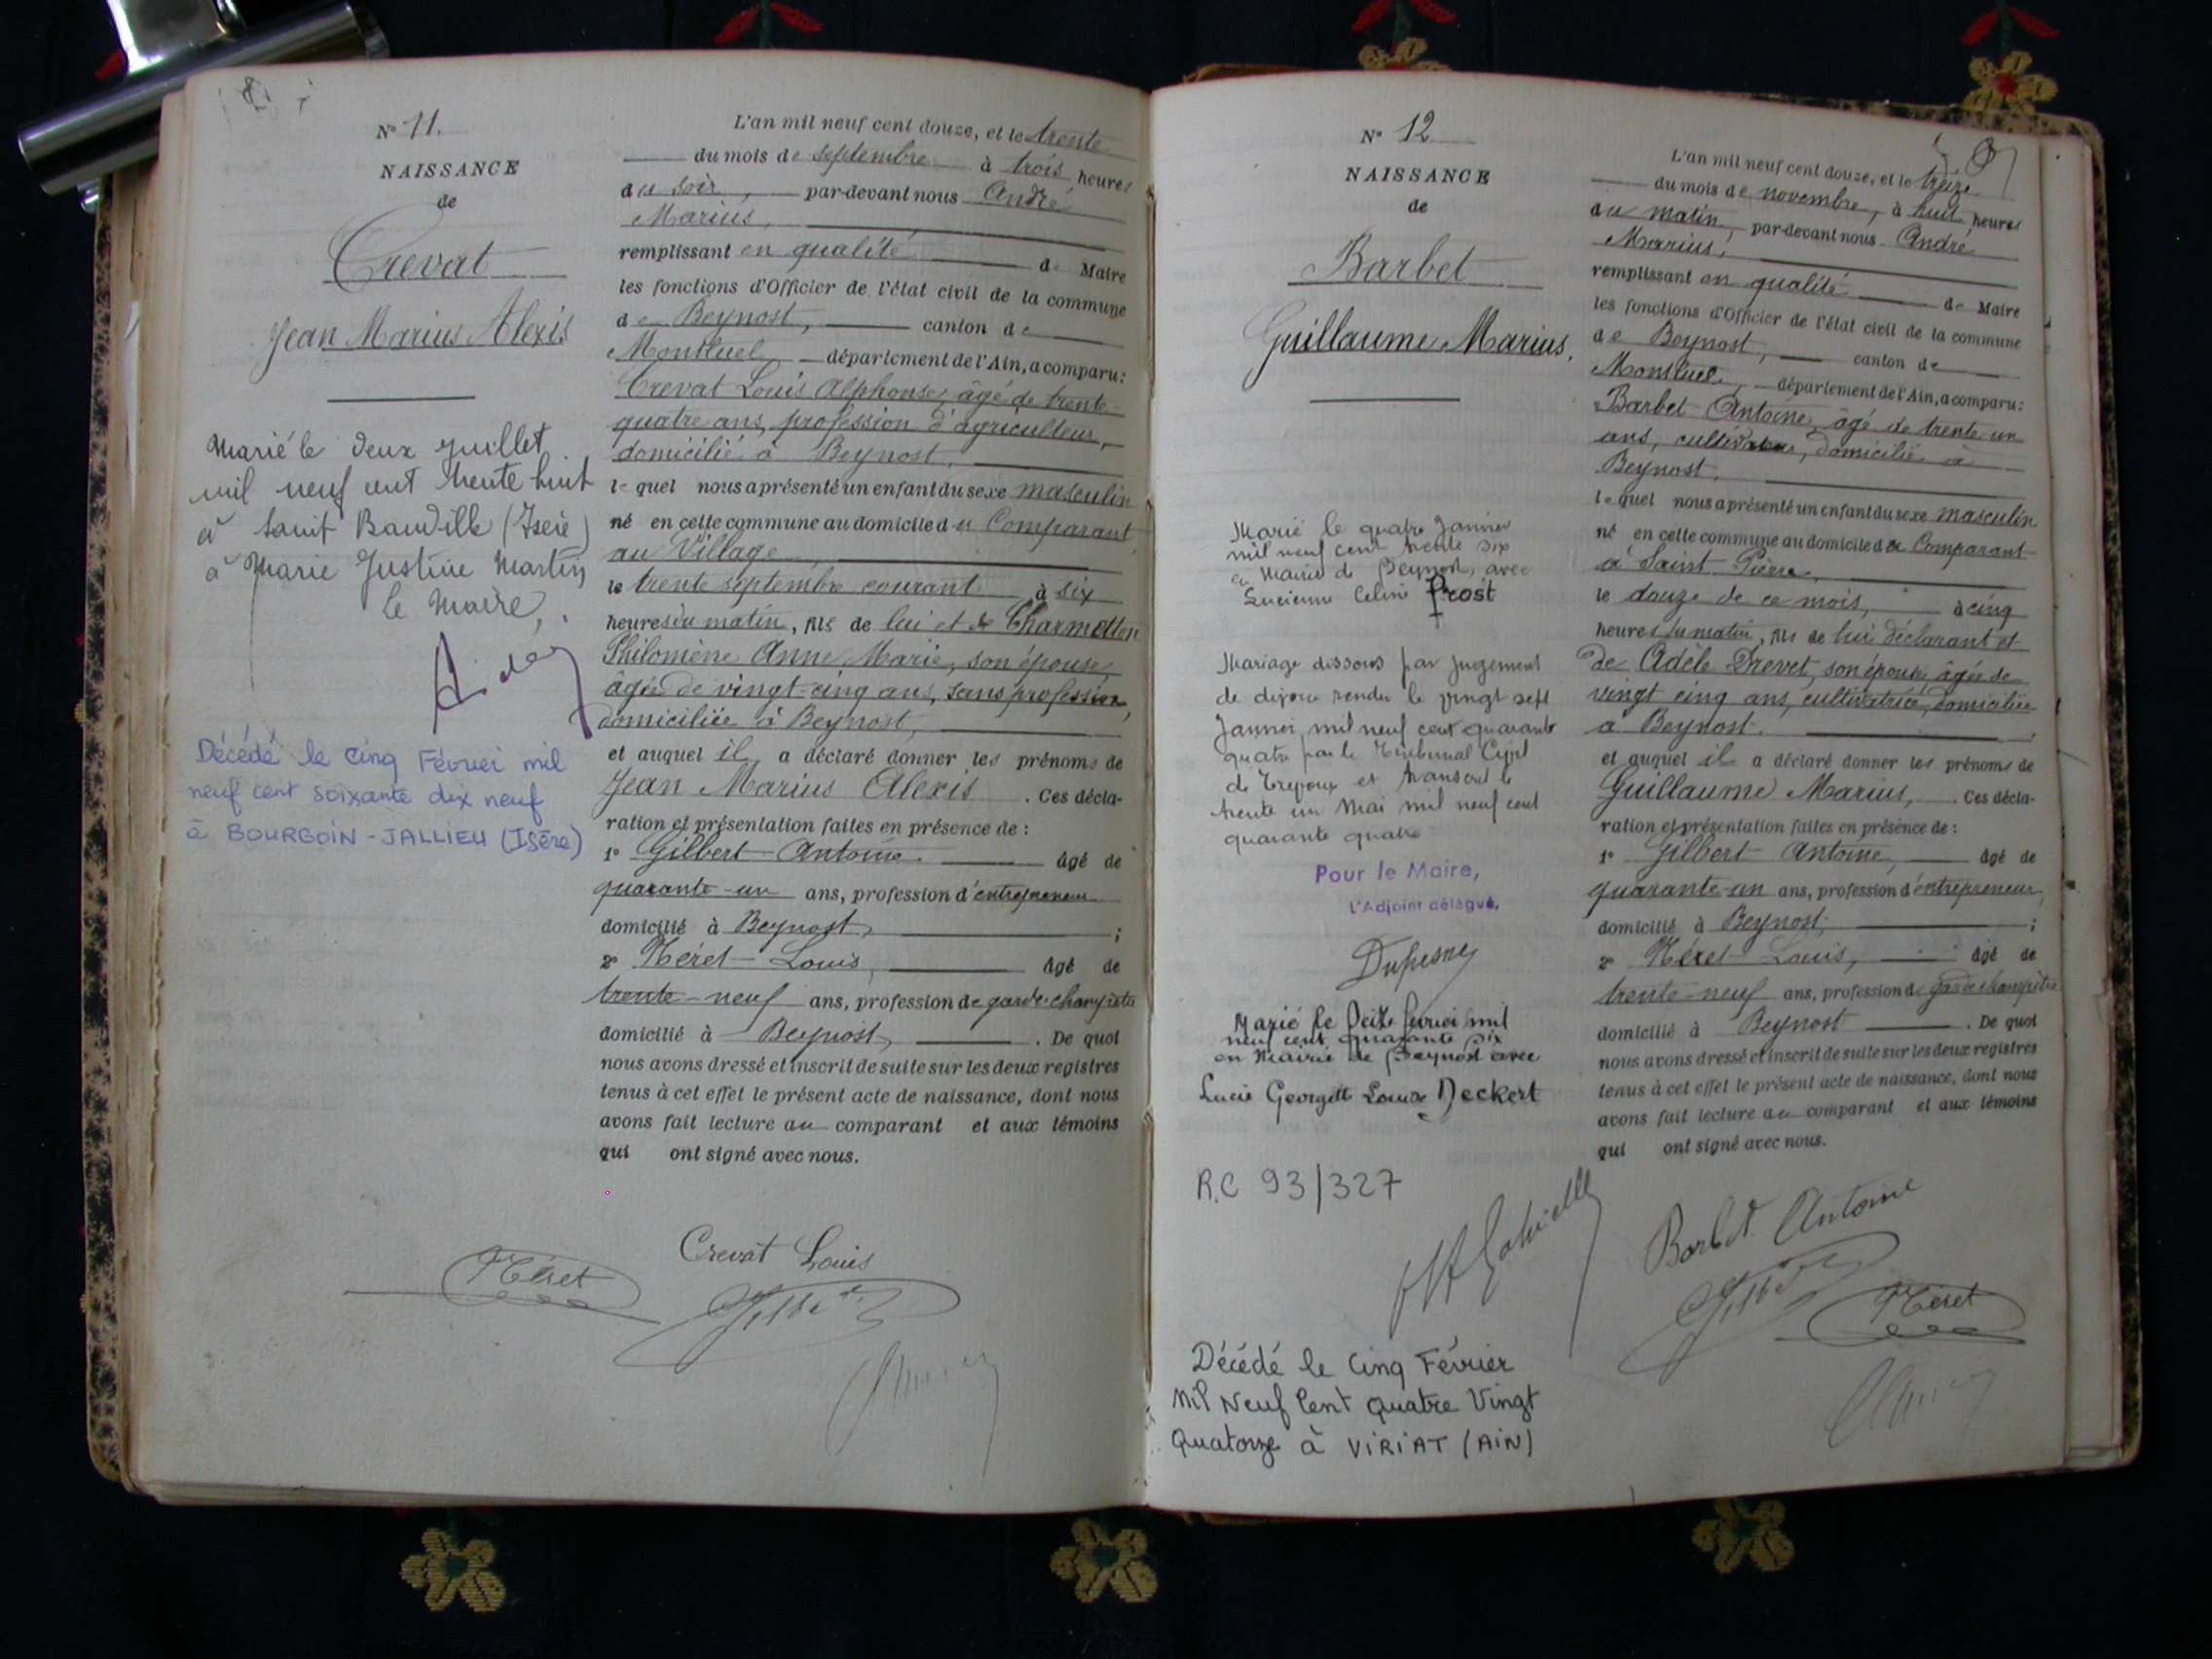 N° 11.
NAISSANCE
de
Crevat
Jean Marius Alexis
Marié le deux juillet
mil neuf cent trente huit
à Saint Baudille (Isère)
à Marie Justine Martin
le Maire,
Décédé le cinq Février mil
neuf cent soixante dix neuf
à BOURGOIN-JALLIEU (Isère)
L'an mil neuf cent douze, et le trente
du mois de septembre à trois heures
du soir, par-devant nous André
Marius,
remplissant en qualité de Maire
les fonctions d'Officier de l'état civil de la commune
de Beynost, canton de
Montluel, département de l'Ain, a comparu:
Crevat Louis Alphonse, âgé de trente-
quatre ans, profession d'agriculteur,
domicilié à Beynost,
lequel nous a présenté un enfant du sexe masculin
né en cette commune au domicile du Comparant
au Village
le trente septembre courant à six
heures du matin, fils de lui et de Charmetton
Philomène Anne Marie, son épouse,
âgée de vingt-cinq ans, sans profession,
domiciliée à Beynost,
et auquel il a déclaré donner les prénoms de
Jean Marius Alexis. Ces décla-
ration et présentation faites en présence de :
1° Gilbert Antoine. âgé de
quarante-un ans, profession d'entrepreneur
domicilié à Beynost, ;
2° Néret Louis, âgé de
trente-neuf ans, profession de garde-champêtre
domicilié à Beynost, . De quoi
nous avons dressé et inscrit de suite sur les deux registres
tenus à cet effet le présent acte de naissance, dont nous
avons fait lecture au comparant et aux témoins
qui ont signé avec nous.
Crevat Louis
Néret
N° 12
NAISSANCE
de
Barbet
Guillaume Marius.
Marié le quatre Janvier
mil neuf cent trente six
en Mairie de Beynost, avec
Lucienne Celine Prost
Mariage dissous par jugement
de divorce rendu le vingt sept
Janvier mil neuf cent quarante
quatre par le Tribunal Civil
de Trévoux et transcrit le
trente un Mai mil neuf cent
quarante quatre
Pour le Maire,
L'Adjoint délégué,
Dufresne
Marié le seize février mil
neuf cent quarante six
en Mairie de Beynost avec
Lucie Georgette Louise Deckert
R.C 93/327
Décédé le Cinq Février
Mil Neuf Cent Quatre Vingt
Quatorze à VIRIAT (AIN)
L'an mil neuf cent douze, et le treize
du mois de novembre, à huit heures
du matin, par-devant nous André
Marius,
remplissant en qualité de Maire
les fonctions d'Officier de l'état civil de la commune
de Beynost, canton de
Montluel, département de l'Ain, a comparu:
Barbet Antoine, âgé de trente-un
ans, cultivateur, domicilié à
Beynost,
lequel nous a présenté un enfant du sexe masculin
né en cette commune au domicile du Comparant
à Saint-Pierre,
le douze de ce mois, à cinq
heures du matin, fils de lui déclarant et
de Adèle Drevet, son épouse, âgée de
vingt cinq ans, cultivatrice, domiciliée
à Beynost.
et auquel il a déclaré donner les prénoms de
Guillaume Marius, . Ces décla-
ration et présentation faites en présence de :
1° Gilbert Antoine, âgé de
quarante-un ans, profession d'entrepreneur,
domicilié à Beynost, ;
2° Néret Louis, âgé de
trente-neuf ans, profession de garde champêtre
domicilié à Beynost . De quoi
nous avons dressé et inscrit de suite sur les deux registres
tenus à cet effet le présent acte de naissance, dont nous
avons fait lecture au comparant et aux témoins
qui ont signé avec nous.
Barbet Antoine
Néret